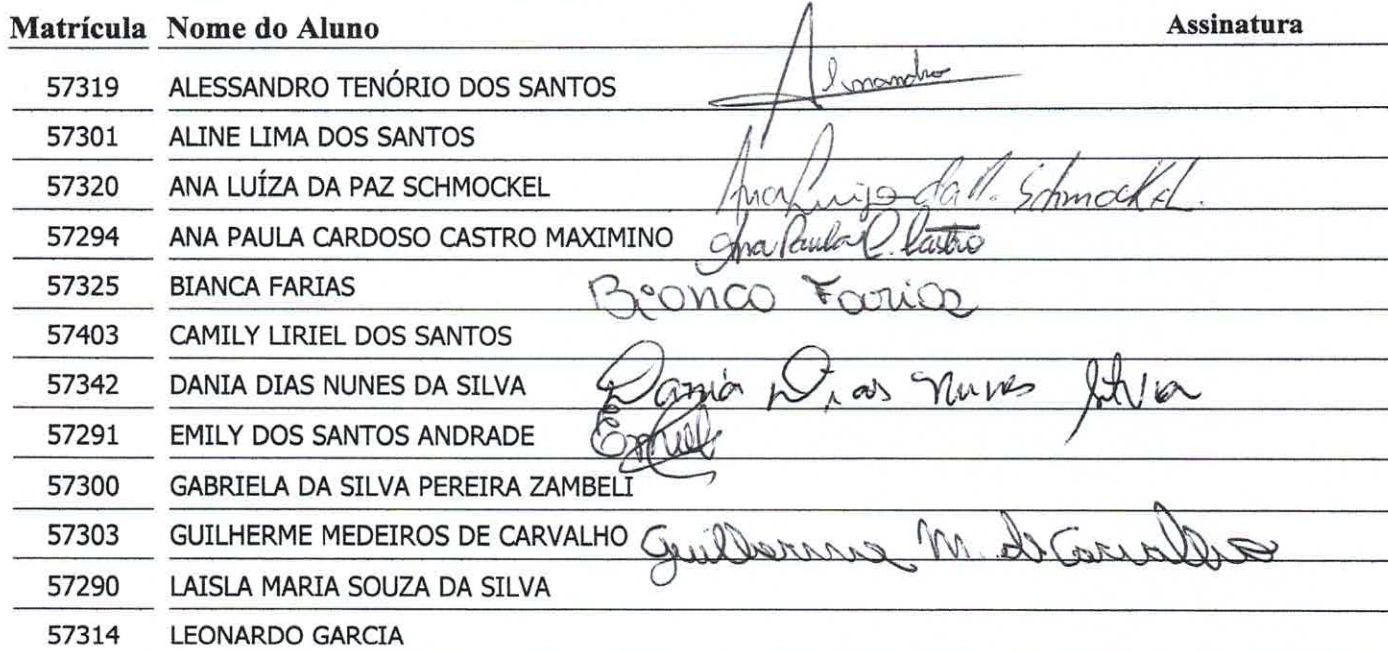 Matrícula Nome do Aluno Assinatura
57319 ALESSANDRO TENÓRIO DOS SANTOS Alessandro
57301 ALINE LIMA DOS SANTOS
57320 ANA LUÍZA DA PAZ SCHMOCKEL Ana Luiza da P. Schmockel.
57294 ANA PAULA CARDOSO CASTRO MAXIMINO Ana Paula C. Castro
57325 BIANCA FARIAS Bianca Farias
57403 CAMILY LIRIEL DOS SANTOS
57342 DANIA DIAS NUNES DA SILVA Dania Dias Nunes Silva
57291 EMILY DOS SANTOS ANDRADE Emily
57300 GABRIELA DA SILVA PEREIRA ZAMBELI
57303 GUILHERME MEDEIROS DE CARVALHO Guilherme M. de Carvalho
57290 LAISLA MARIA SOUZA DA SILVA
57314 LEONARDO GARCIA